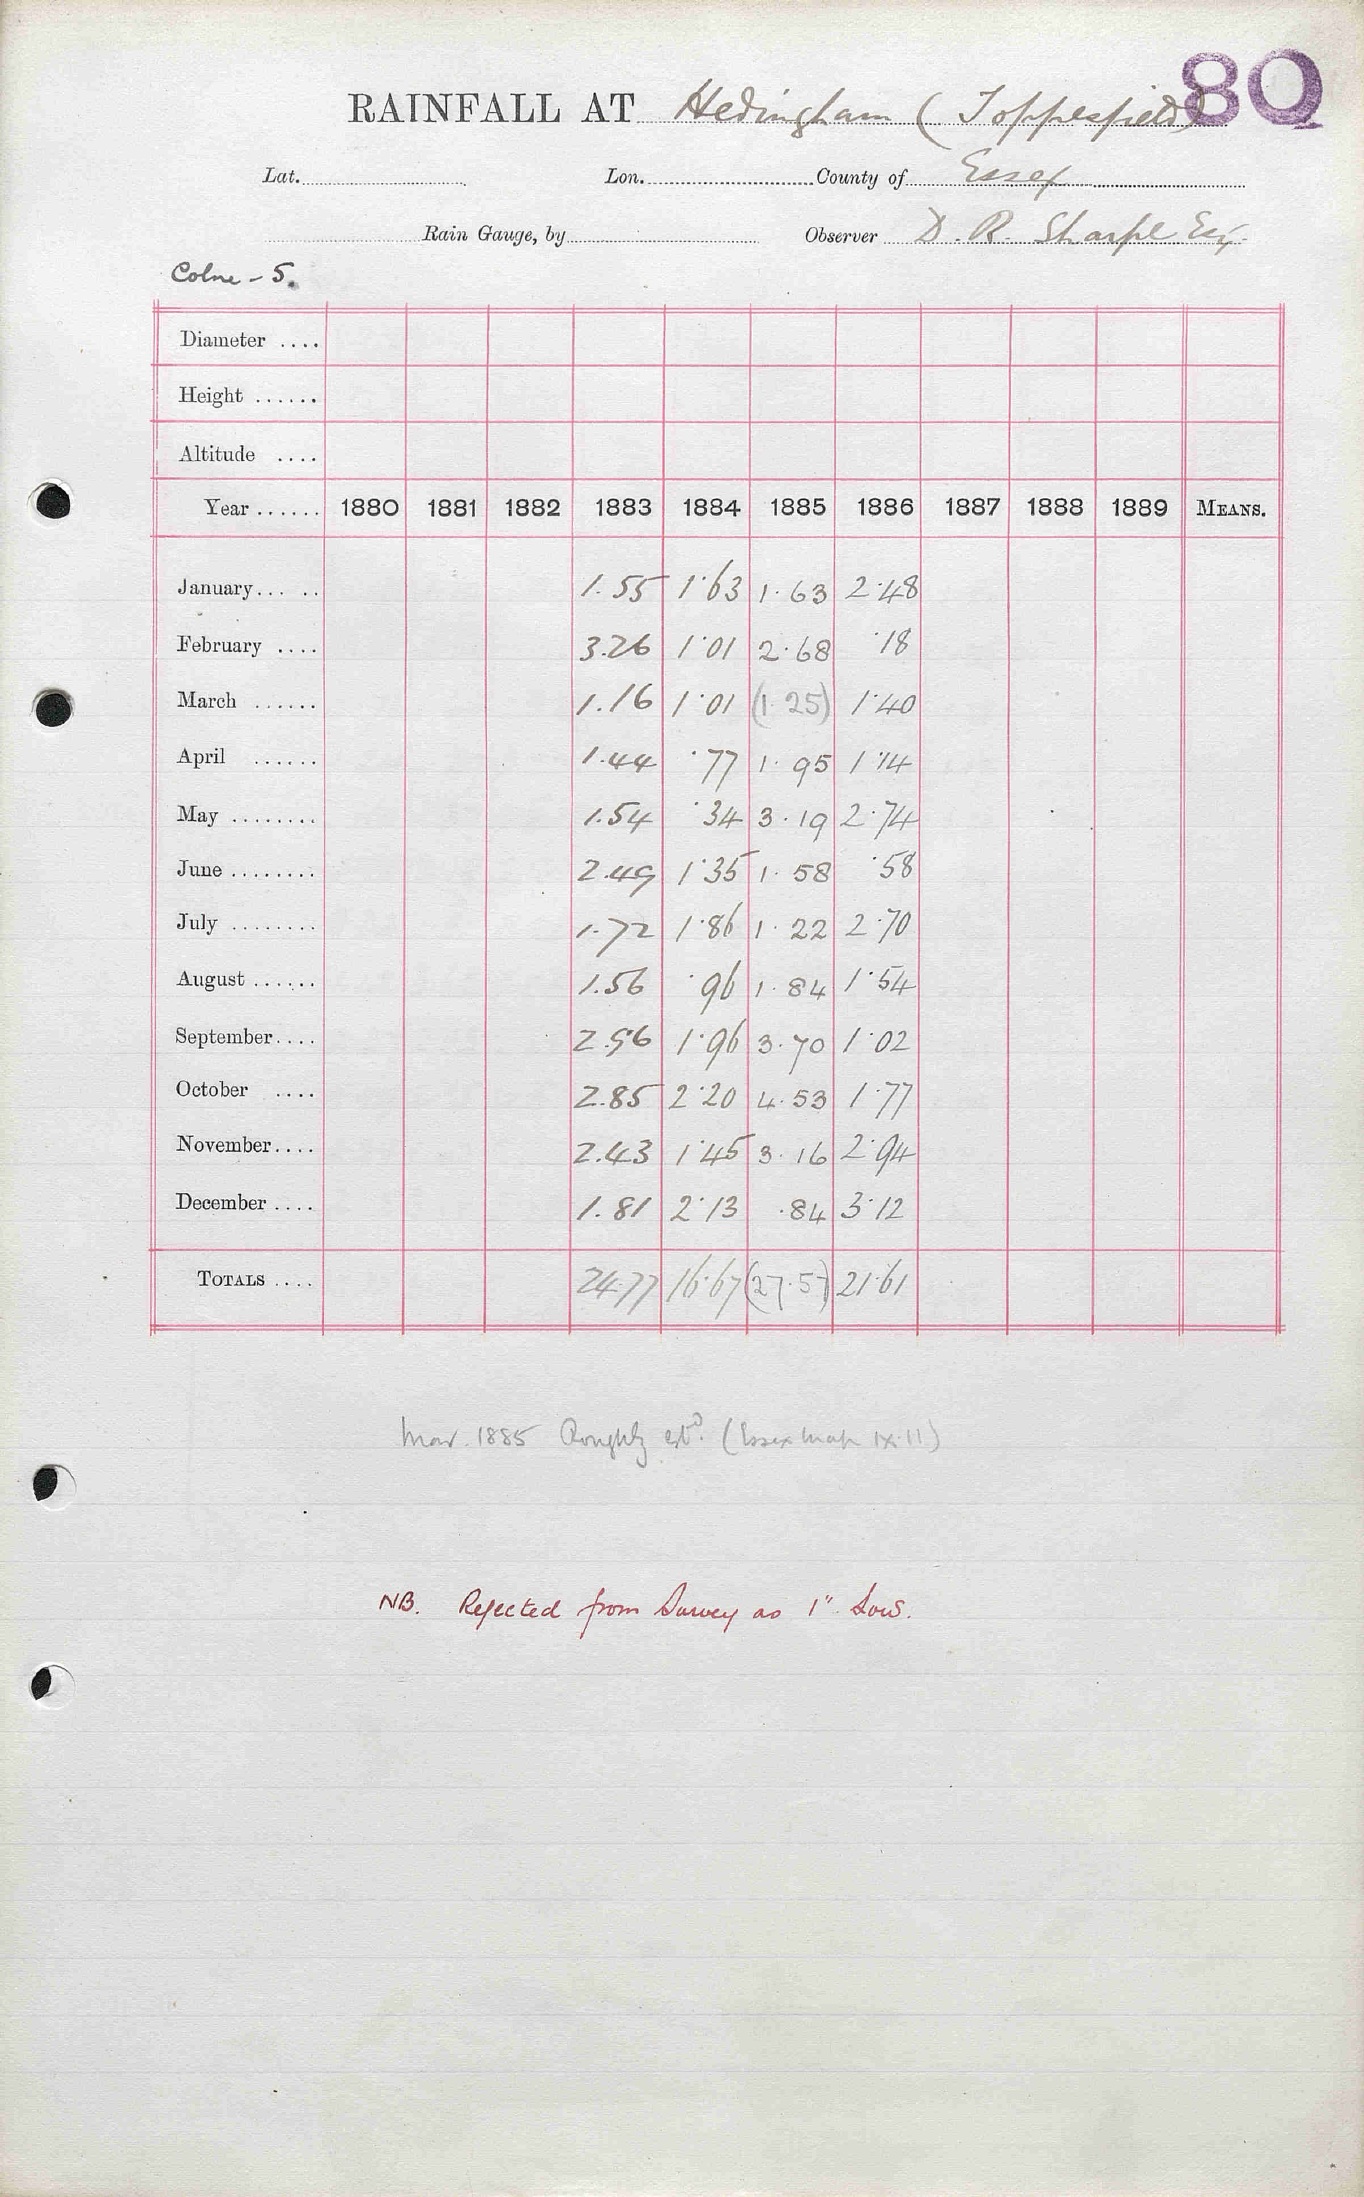 80
RAINFALL AT Hedingham (Toppesfield)
Lat. Lon. County of Essex
Rain Gauge, by Observer D. R. Sharpe Esq.
Colne - 5.
Diameter ....
Height ......
Altitude ....
Year ...... 1880 1881 1882 1883 1884 1885 1886 1887 1888 1889 MEANS.
January... .. 1.55 1·63 1·63 2·48
February .... 3.26 1·01 2·68 ·18
March ...... 1.16 1·01 (1·25) 1·40
April ...... 1.44 ·77 1·95 1·14
May ........ 1.54 ·34 3·19 2·74
June ........ 2.49 1·35 1·58 ·58
July ........ 1.72 1·86 1·22 2·70
August ...... 1.56 ·96 1·84 1·54
September.... 2.96 1·96 3·70 1·02
October .... 2.85 2·20 4·53 1·77
November.... 2.43 1·45 3·16 2·94
December .... 1.81 2·13 ·84 3·12
TOTALS .... 24.77 16·67 (27·57) 21·61
Mar. 1885 Roughly estd. (Essex Map ix.11)
NB. Rejected from Survey as 1" Low.